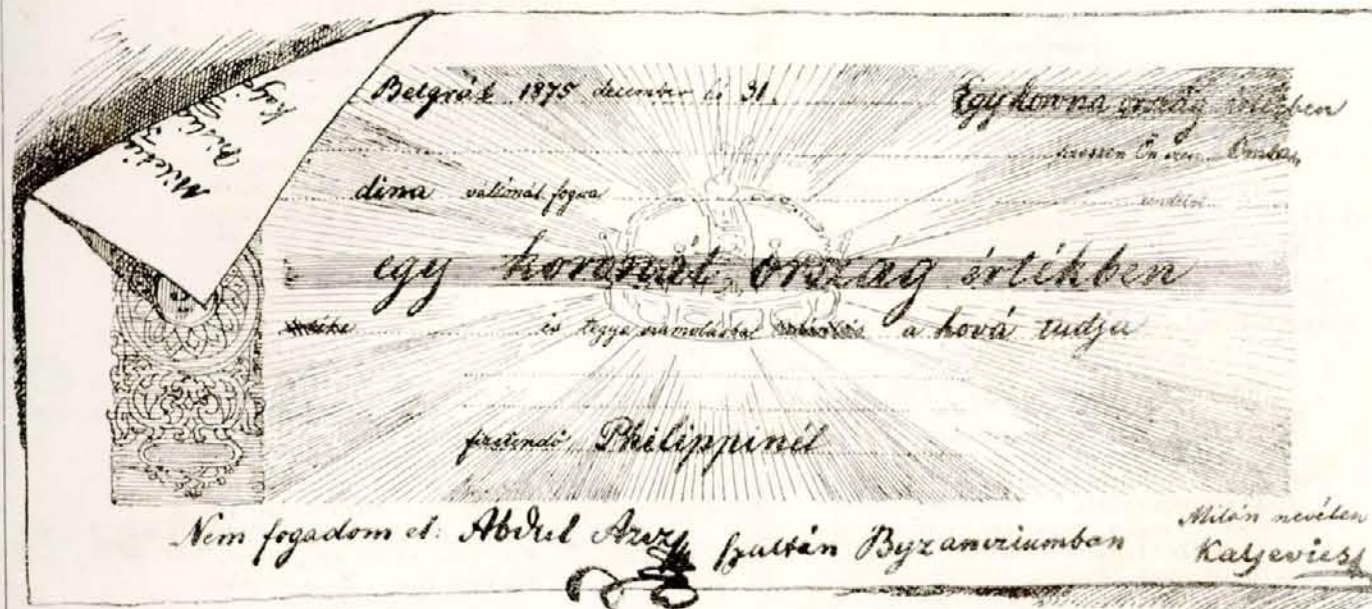 Miletics
Belgrád 1875 december és 31.
Egy korona ország értékben
fizessen Ön ezen Omla-
dina váltómál fogva
rendelni
egy koronát ország értékben
értéke és tegye számolásba a hová tudja
fizetendő Philippinél
Nem fogadom el: Abdul Aziz szultán Byzancziumban
Milán nevében
Kaljevics